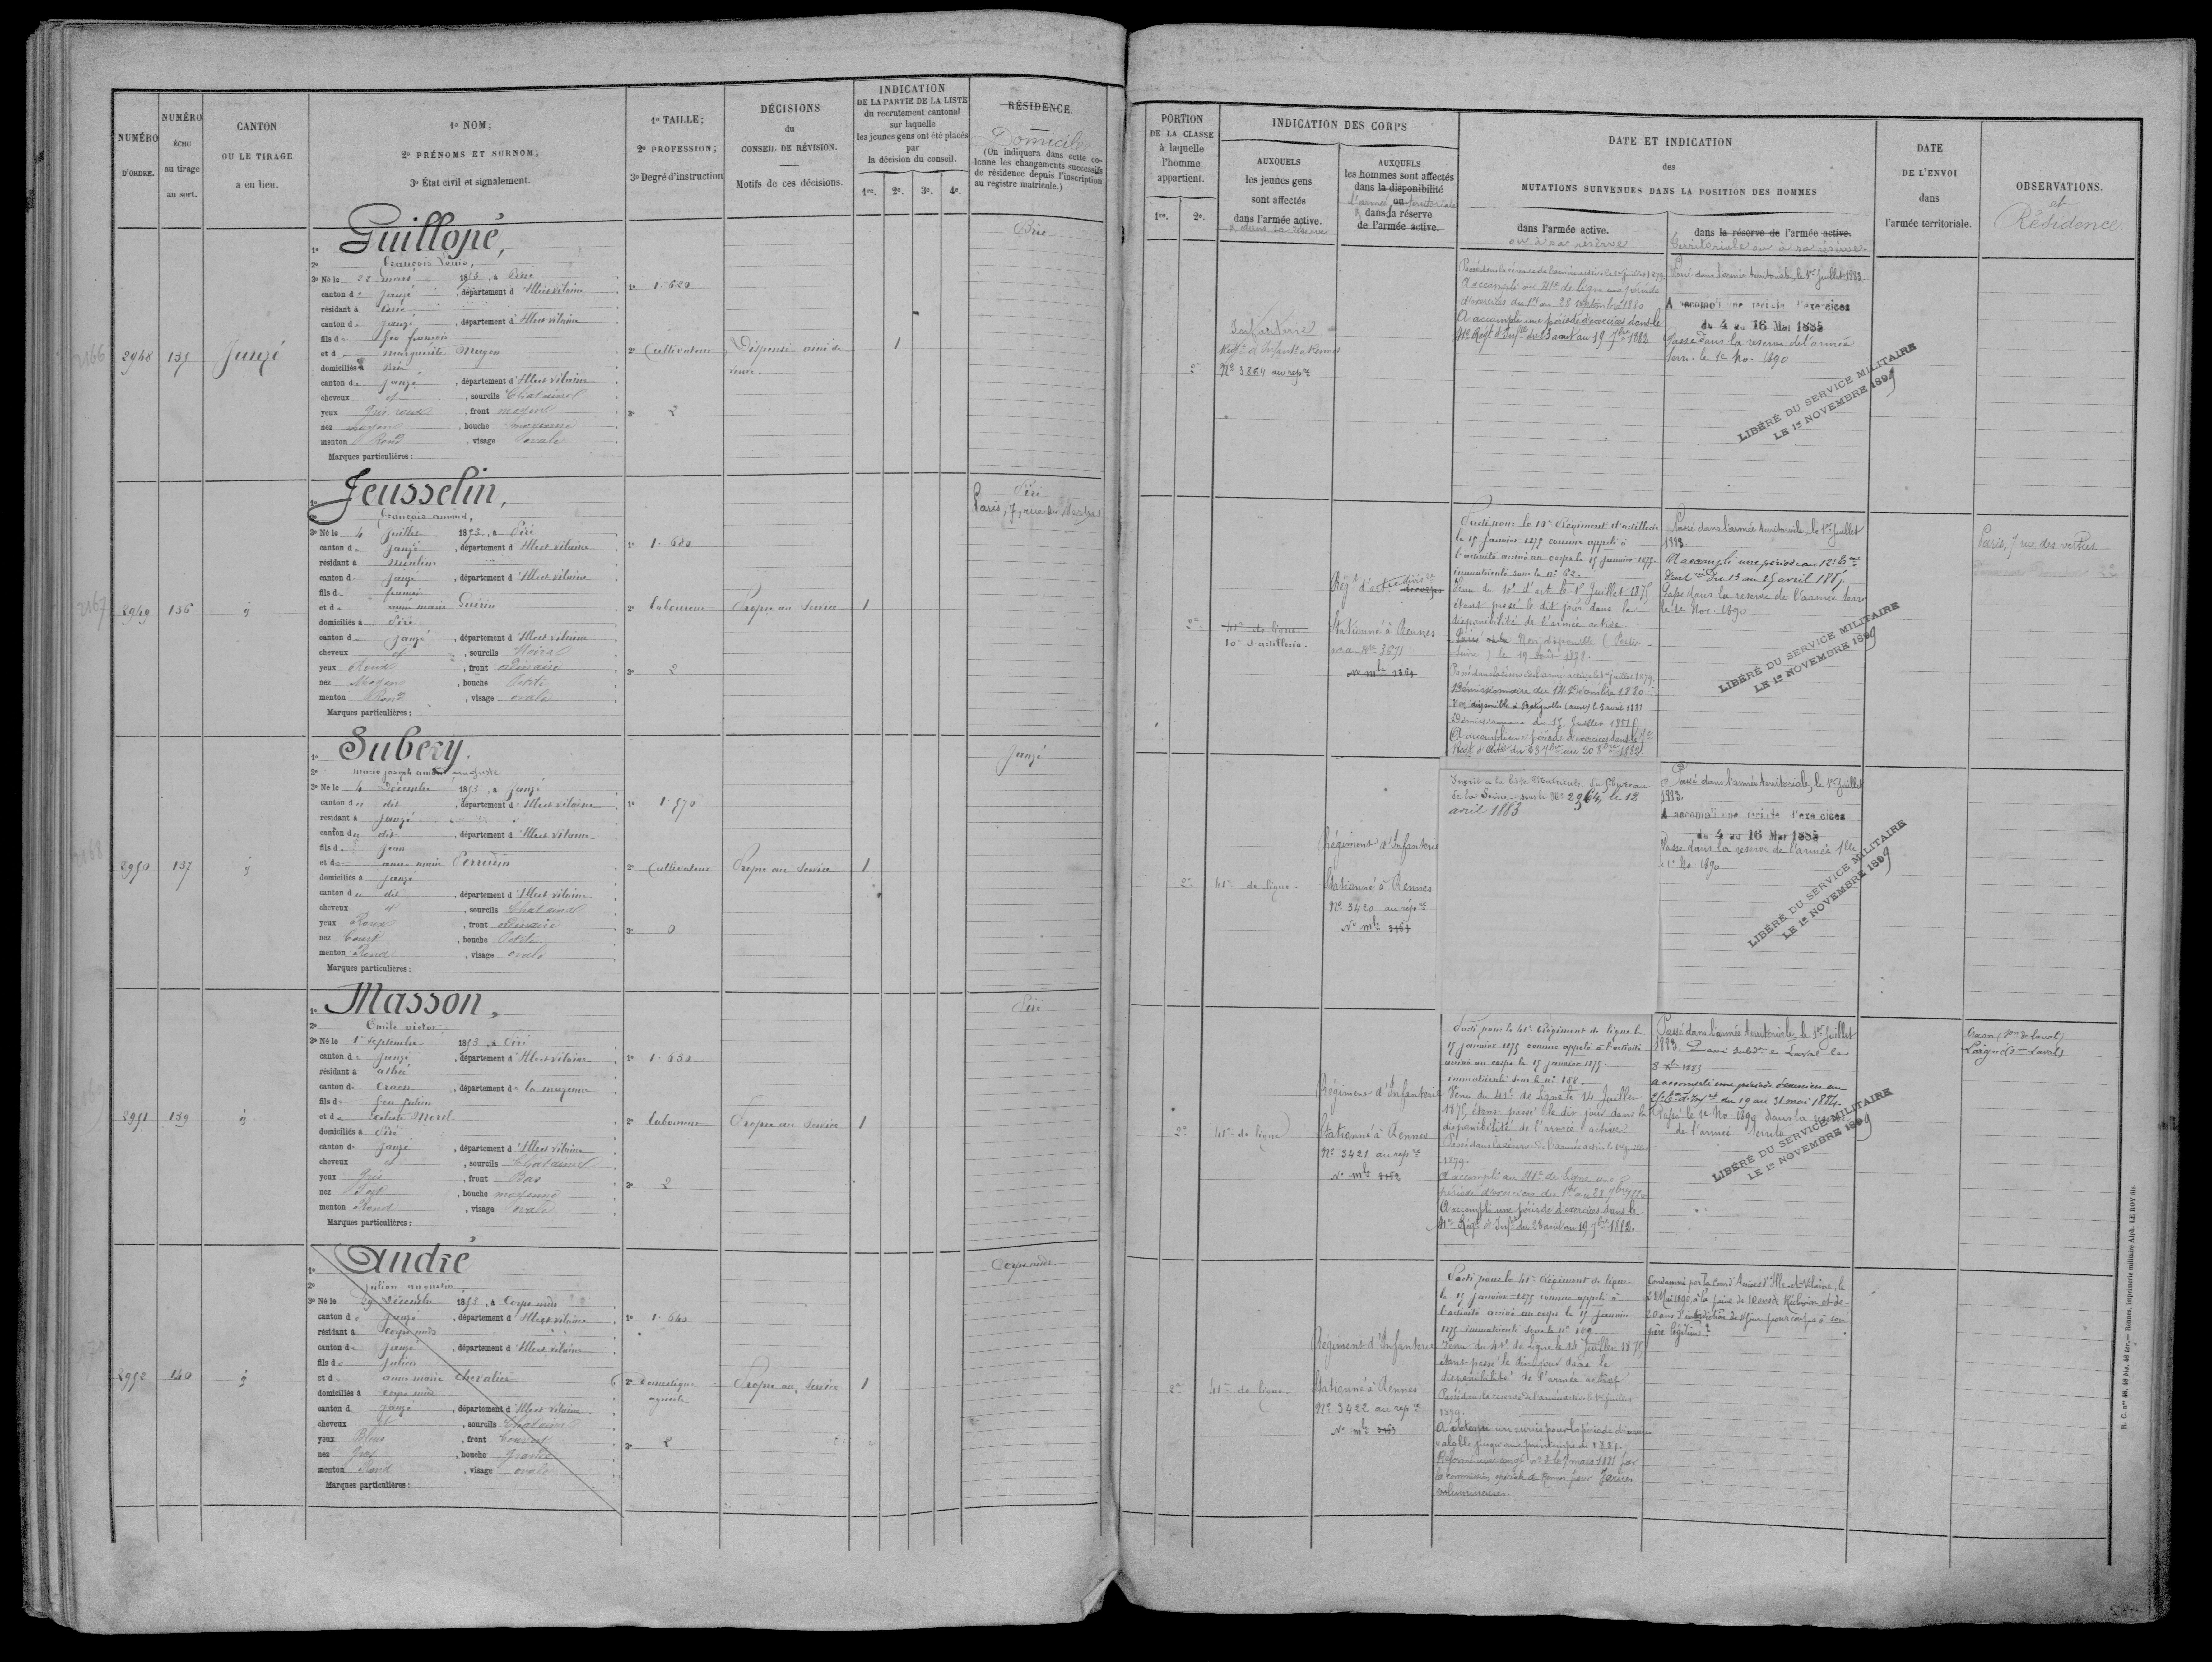 NUMÉRO
D'ORDRE.
NUMÉRO
ÉCHU
au tirage
au sort.
CANTON
OU LE TIRAGE
a eu lieu.
1º NOM;
2º PRÉNOMS ET SURNOM;
3º État civil et signalement.
1º TAILLE;
2º PROFESSION;
3º Degré d'instruction
DÉCISIONS
du
CONSEIL DE RÉVISION.
Motifs de ces décisions.
INDICATION
DE LA PARTIE DE LA LISTE
du recrutement cantonal
sur laquelle
les jeunes gens ont été placés
par
la décision du conseil.
1re. 2e. 3e. 4e.
RÉSIDENCE.
Domicile
(On indiquera dans cette co-
lonne les changements successifs
de résidence depuis l'inscription
au registre matricule.)
2166
2948 135 Janzé
1º Guillopé,
2º François Louis,
3º Né le 22 mars 1853, à Brie
canton de Janzé, département d'Ille et vilaine
résidant à Brie
canton de Janzé, département d'Ille et vilaine
fils de feu françois
et de marguerite
domiciliés à Brie
canton de Janzé, département d'Ille et vilaine
cheveux et, sourcils Chatains
yeux Gris roux, front moyen
nez moyen, bouche moyenne
menton Rond, visage ovale
Marques particulières:
1º 1.620
2º Cultivateur
3º 2
Dispensé ainé de
veuve.
1
Brie
2167
2949 136 id
1º Jeusselin,
2º François amand,
3º Né le 4 Juillet 1853, à Piré
canton de Janzé, département d'Ille et vilaine
résidant à moulins
canton de Janzé, département d'Ille et vilaine
fils de francois
et de anne marie Guérin
domiciliés à Piré
canton de Janzé, département d'Ille et vilaine
cheveux et, sourcils Noirs
yeux Roux, front ordinaire
nez Moyen, bouche Petite
menton Rond, visage ovale
Marques particulières:
1º 1.680
2º laboureur
3º 2
Propre au Service
1
Piré
Paris, 7, rue des Vertus
2168
2950 137 id
1º Subery.
2º marie joseph amand auguste
3º Né le 4 Décembre 1853, à Janzé
canton du dit, département d'Ille et vilaine
résidant à Janzé
canton du dit, département d'Ille et vilaine
fils de Jean
et de anne marie Perrudin
domiciliés à Janzé
canton du dit, département d'Ille et vilaine
cheveux et, sourcils Chatains
yeux Roux, front ordinaire
nez Court, bouche Petite
menton Rond, visage ovale
Marques particulières:
1º 1.570
2º Cultivateur
3º 0
Propre au Service
1
Janzé
2951 139 id
1º Masson,
2º Emile victor
3º Né le 1er septembre 1853, à Piré
canton de Janzé, département d'Ille et vilaine
résidant à athée
canton de Craon, département de la mayenne
fils de feu Julien
et de Celeste Morel
domiciliés à Piré
canton de Janzé, département d'Ille et vilaine
cheveux et, sourcils Chatains
yeux Gris, front Bas
nez Fort, bouche moyenne
menton Rond, visage ovale
Marques particulières:
1º 1.630
2º laboureur
3º 2
Propre au Service
1
Piré
2170
2952 140 id
1º André
2º Julien augustin
3º Né le 29 Décembre 1853, à Corps nuds
canton de Janzé, département d'Ille et vilaine
résidant à corps nuds
canton de Janzé, département d'Ille et vilaine
fils de Julien
et de anne marie chevalier
domiciliés à corps nuds
canton de Janzé, département d'Ille et vilaine
cheveux et, sourcils Chatains
yeux Bleus, front Couvert
nez Gros, bouche Grande
menton Rond, visage ovale
Marques particulières:
1º 1.640
2º Domestique
agricole
3º 2
Propre au Service
1
Corps nuds.
PORTION
DE LA CLASSE
à laquelle
l'homme
appartient.
1re. 2e.
INDICATION DES CORPS
AUXQUELS
les jeunes gens
sont affectés
dans l'armée active.
& dans sa réserve
AUXQUELS
les hommes sont affectés
dans la disponibilité
l'armée ou territoriale
& dans la réserve
de l'armée active.
DATE ET INDICATION
des
MUTATIONS SURVENUES DANS LA POSITION DES HOMMES
dans l'armée active.
ou à sa réserve
dans la réserve de l'armée active.
territoriale ou à sa réserve.
DATE
DE L'ENVOI
dans
l'armée territoriale.
OBSERVATIONS.
et
Résidence.
2e
Infanterie
Régt d'Infant à Rennes
Nº 3864 au repre
Passé dans la réserve de l'armée active le 1er Juillet 1879
A accompli au 41e de ligne une période
d'exercices du 1er au 28 septembre 1880
A accompli une période d'exercices dans le
41e Régt d'Infie du 23 aout au 19 7bre 1882
Passé dans l'armée territoriale, le 1er Juillet 1883.
A accompli une période d'exercices
du 4 au 16 Mai 1885
Passé dans la reserve de l'armée
terre le 1e No. 1890
LIBÉRÉ DU SERVICE MILITAIRE
LE 1er NOVEMBRE 1899
2e
41e de ligne.
10e d'artillerie.
Régt d'artie divis re
decorps
Stationné à Rennes
Nº 3671
Nº mle 1824
Parti pour le 10e Régiment d'artillerie
le 15 Janvier 1875 comme appelé à
l'activité arrivé au corps le 15 janvier 1875.
immatriculé sous le nº 62.
Venu du 10e d'art. le 1er Juillet 1875
étant passé le dit jour dans la
disponibilité de l'armée active
Non disponible
le 19 Août 1878.
Passé dans la réserve de l'armée active le 1er Juillet 1879.
Démissionnaire du 14 Décembre 1880
Non disponible à Batignolles (ouest) le 5 avril 1881
Démissionnaire du 17 Juillet 1881
A accompli une période d'exercices dans le
Régt d'Artie du 23 7bre au 20 8bre 1882
Passé dans l'armée territoriale, le 1er Juillet
1883.
A accompli une période au
du 13 au 25 avril
Passé dans la reserve de l'armée terre
le 1e Nov. 1890
LIBÉRÉ DU SERVICE MILITAIRE
LE 1er NOVEMBRE 1899
Paris, 7 rue des vertus.
2e
41e de ligne.
Régiment d'Infanterie
Stationné à Rennes
Nº 3420 au repre
Nº mle 3161
Inscrit à la liste Matricule du bureau
de la Seine sous le Nº 2964, le 12
avril 1883
Passé dans l'armée territoriale, le 1er Juillet
1883.
A accompli une période d'exercices
du 4 au 16 Mai 1885
Passé dans la reserve de l'armée
le 1e No. 1890
LIBÉRÉ DU SERVICE MILITAIRE
LE 1er NOVEMBRE 1899
2e
41e de ligne
Régiment d'Infanterie
Stationné à Rennes
Nº 3421 au repre
Nº mle 3162
Parti pour le 41e Régiment de ligne le
15 janvier 1875 comme appelé à l'activité
arrivé au corps le 15 janvier 1875.
immatriculé sous le nº 188.
Venu du 41e de Ligne le 14 Juillet
1875 étant passé le dit jour dans la
disponibilité de l'armée active
Passé dans la réserve de l'armée active le 1er Juillet
1879.
A accompli au 41e de ligne une
période d'exercices du 1er au 28 7bre 1880
A accompli une période d'exercices dans le
41e Régt d'Infie du 23 aout au 19 7bre 1882.
Passé dans l'armée territoriale, le 1er Juillet
1883. Passé subdon de Laval le
8 Xbre 1883
A accompli une période d'exercices au
du 19 au 31 mai 1884.
Passé le 1e No 1890 dans la reserve
de l'armée territo
LIBÉRÉ DU SERVICE MILITAIRE
LE 1er NOVEMBRE 1899
Craon (Son de Laval)
Laigné (Son Laval)
2e
41e de ligne.
Régiment d'Infanterie
Stationné à Rennes
Nº 3422 au repre
Nº mle 3163
Parti pour le 41e Régiment de ligne
le 15 janvier 1875 comme appelé à
l'activité arrivé au corps le 15 janvier
1875. immatriculé sous le nº 189.
Venu du 41e de Ligne le 14 Juillet 1875
étant passé le dit jour dans la
disponibilité de l'armée active
Passé dans la réserve de l'armée active le 1er Juillet
1879.
A obtenu un sursis pour la période d'exercices
valable jusqu'au printemps de 1881.
Réformé avec congé nº 2 le 7 mars 1881 par
la commission spéciale de Rennes pour Varices
volumineuses.
Condamné par la Cour d'Assises d'Ille-et-Vilaine, le
28 Mai 1890, à la peine de 10 ans de Réclusion et de
20 ans d'interdiction de séjour pour coups à son
père légitime.
R. C. nos 46, 46 bis, 46 ter.— Rennes, imprimerie militaire Alph. LE ROY fils
535